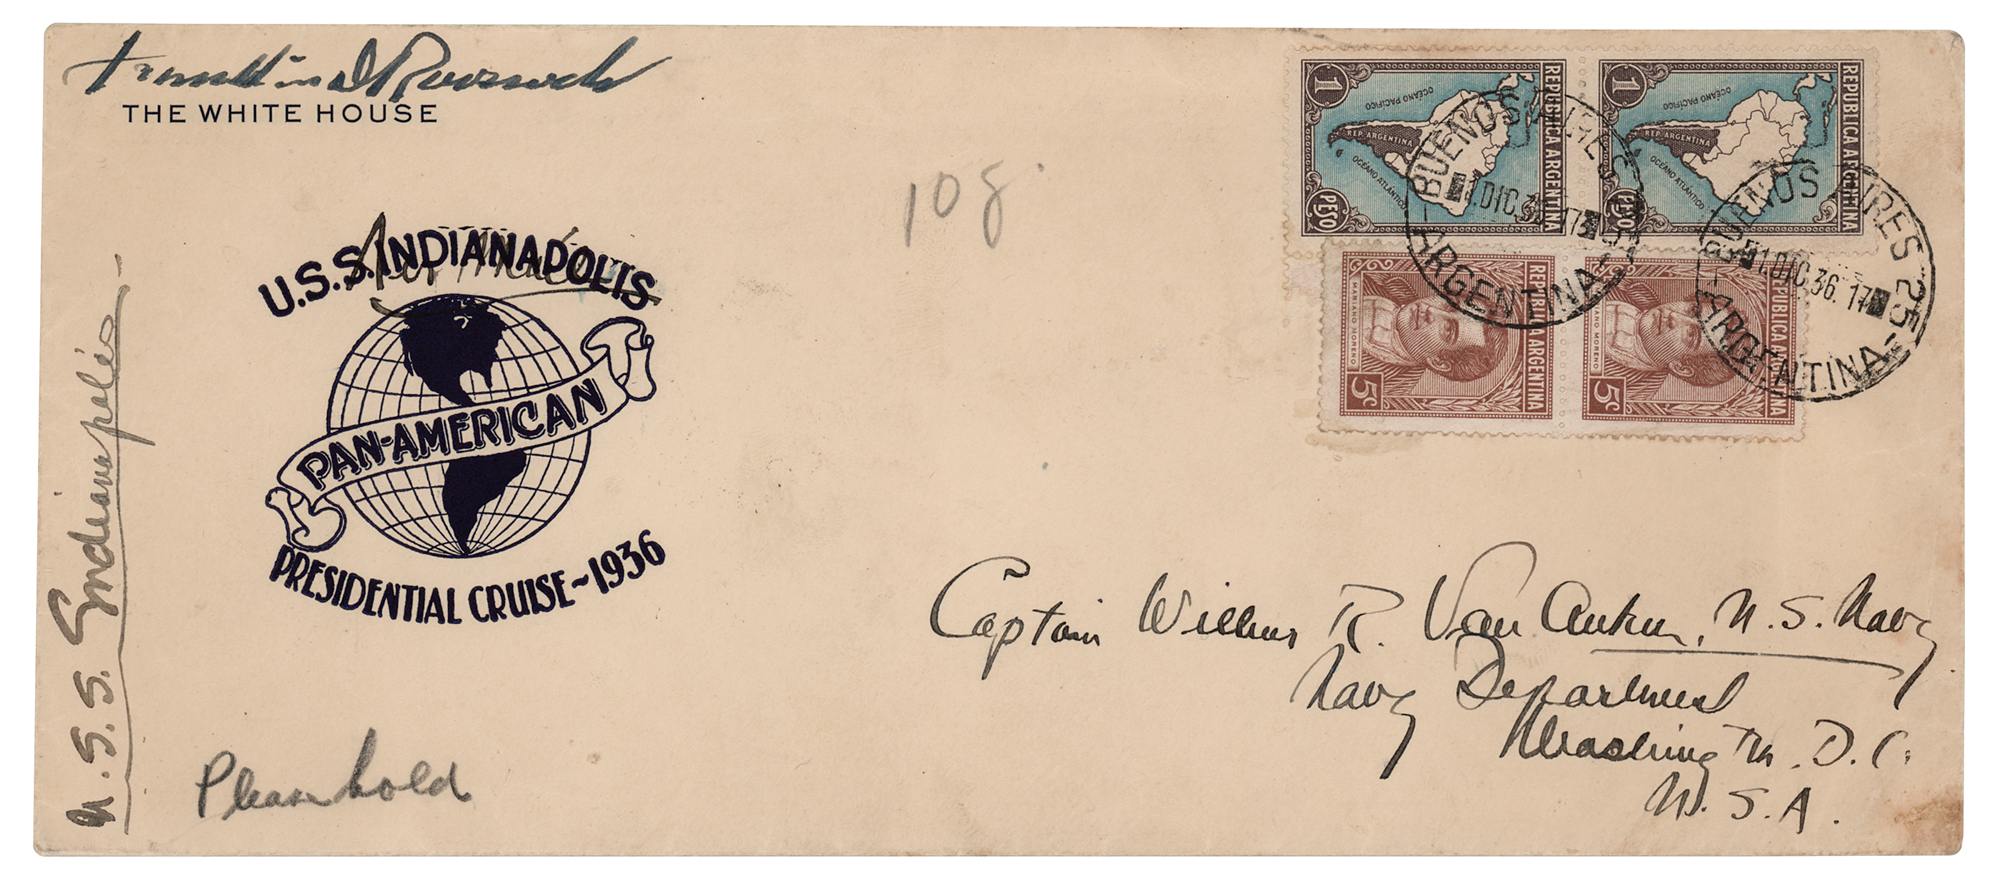 Franklin D Roosevelt
THE WHITE HOUSE
10 g.
Air Mail
U.S.S. INDIANAPOLIS
PAN-AMERICAN
PRESIDENTIAL CRUISE~1936
U. S. S. Indianapolis
Please hold
1 PESO
REPUBLICA ARGENTINA
OCÉANO PACÍFICO
REP. ARGENTINA
OCÉANO ATLÁNTICO
1 PESO
REPUBLICA ARGENTINA
OCÉANO PACÍFICO
REP. ARGENTINA
OCÉANO ATLÁNTICO
REPUBLICA ARGENTINA
MARIANO MORENO
5c
REPUBLICA ARGENTINA
MARIANO MORENO
5c
BUENOS AIRES 25
1.DIC.36.17
ARGENTINA
BUENOS AIRES 25
1.DIC.36.17
ARGENTINA
Captain Wilbur R. Van Auken, U. S. Navy
Navy Department
Washington. D. C.
U. S. A.